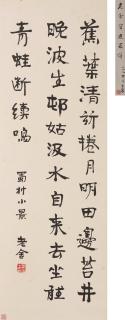 蕉葉清新捲月明田邊苔井
晚波生邨姑汲水自来去坐聽
青蛙断續鳴
蜀村小景 老舍